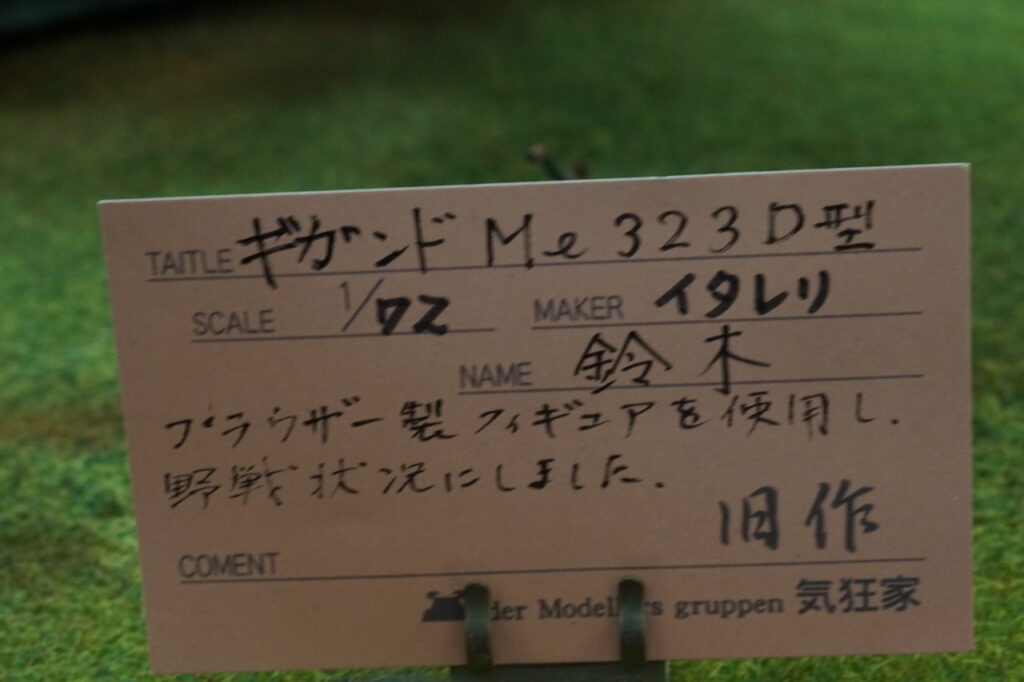 TAITLE ギガンド Me 323D型
SCALE 1/72 MAKER イタレリ
NAME 鈴木
プラウザー製フィギュアを使用し.
野戦状況にしました.
旧作
COMENT
der Modellers gruppen 気狂家